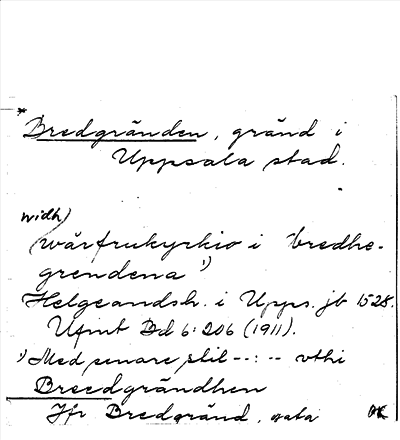 *
Bredgränden, gränd i
Uppsala stad.
widh)
wårfrukyrkio i bredhe-
grendena ¹)
Helgeandsh. i Upps. jb 1528.
Ufmt Bd 6:206 (1911).
¹) Med senare stil --:-- vthi
Breedgrändhen
Jfr Bredgränd, gata